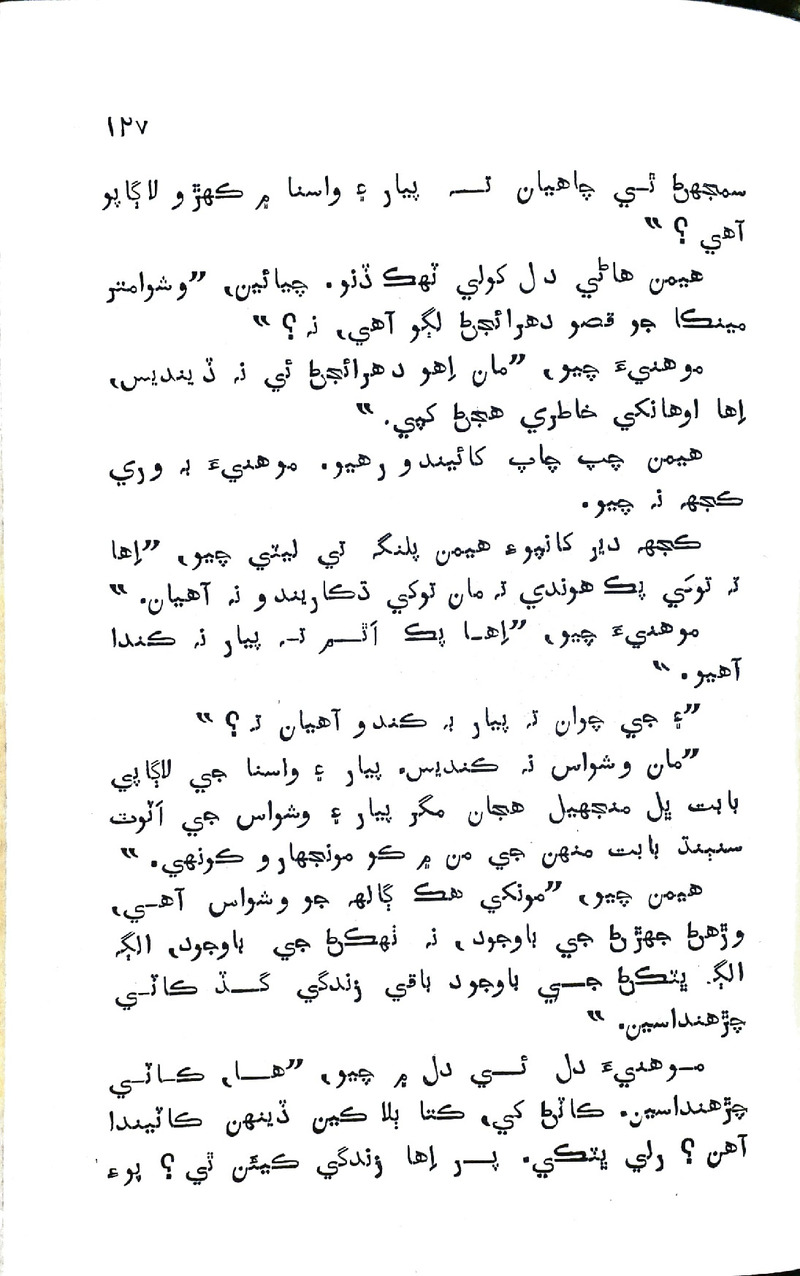 ١٢٧
سمجهڻ ٿي چاهيان تہ پيار ۽ واسنا ۾ ڪهڙو لاڳاپو
آهي ؟ “
هيمن هاڻي دل کولي ٽهڪ ڏنو. چيائين، ”وشوامتر
مينڪا جو قصو دهرائجڻ لڳو آهي، نہ ؟ “
موهنيءَ چيو، ”مان اِهو دهرائجڻ ئي نہ ڏينديس،
اِها اوهانکي خاطري هجڻ کپي. “
هيمن چپ چاپ کائيندو رهيو. موهنيءَ بہ وري
ڪجهہ نہ چيو.
ڪجهہ دير کانپوءِ هيمن پلنگہ تي ليٽي چيو، ”اِها
تہ توکي پڪ هوندي تہ مان توکي ڌڪاريندو نہ آهيان. “
موهنيءَ چيو، ”اِها پڪ اَٿم تہ پيار نہ ڪندا
آهيو. “
”۽ جي چوان تہ پيار بہ ڪندو آهيان تہ ؟ “
”مان وشواس نہ ڪنديس. پيار ۽ واسنا جي لاڳاپي
بابت ڀل منجهيل هجان مگر پيار ۽ وشواس جي اَٽوٽ
سنٻنڌ بابت منهن جي من ۾ ڪو مونجهارو ڪونهي. “
هيمن چيو، ”مونکي هڪ ڳالهہ جو وشواس آهي،
وڙهڻ جهڙڻ جي باوجود، نہ ٺهڪڻ جي باوجود، الڳہ
الڳہ ڀٽڪڻ جي باوجود باقي زندگي گڏ ڪاٽي
چڙهنداسين. “
موهنيءَ دل ئي دل ۾ چيو، ”ها، ڪاٽي
چڙهنداسين. ڪاٽڻ کي، ڪتا ٻلا ڪين ڏينهن ڪاٽيندا
آهن ؟ رلي ڀٽڪي. پر اِها زندگي ڪيئن ٿي ؟ پوءِ